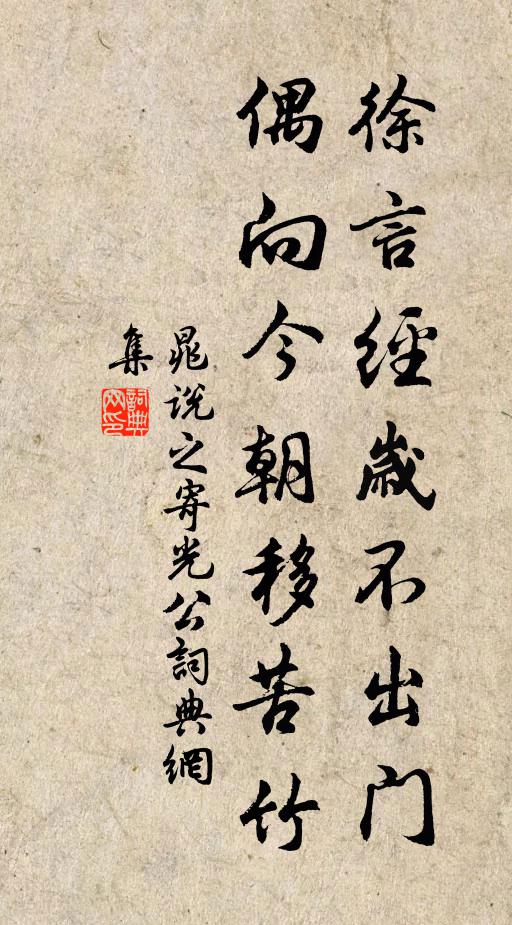 徐言經歲不出門
偶向今朝移苦竹
晁說之寄光公詞典網
集
詞典
网印